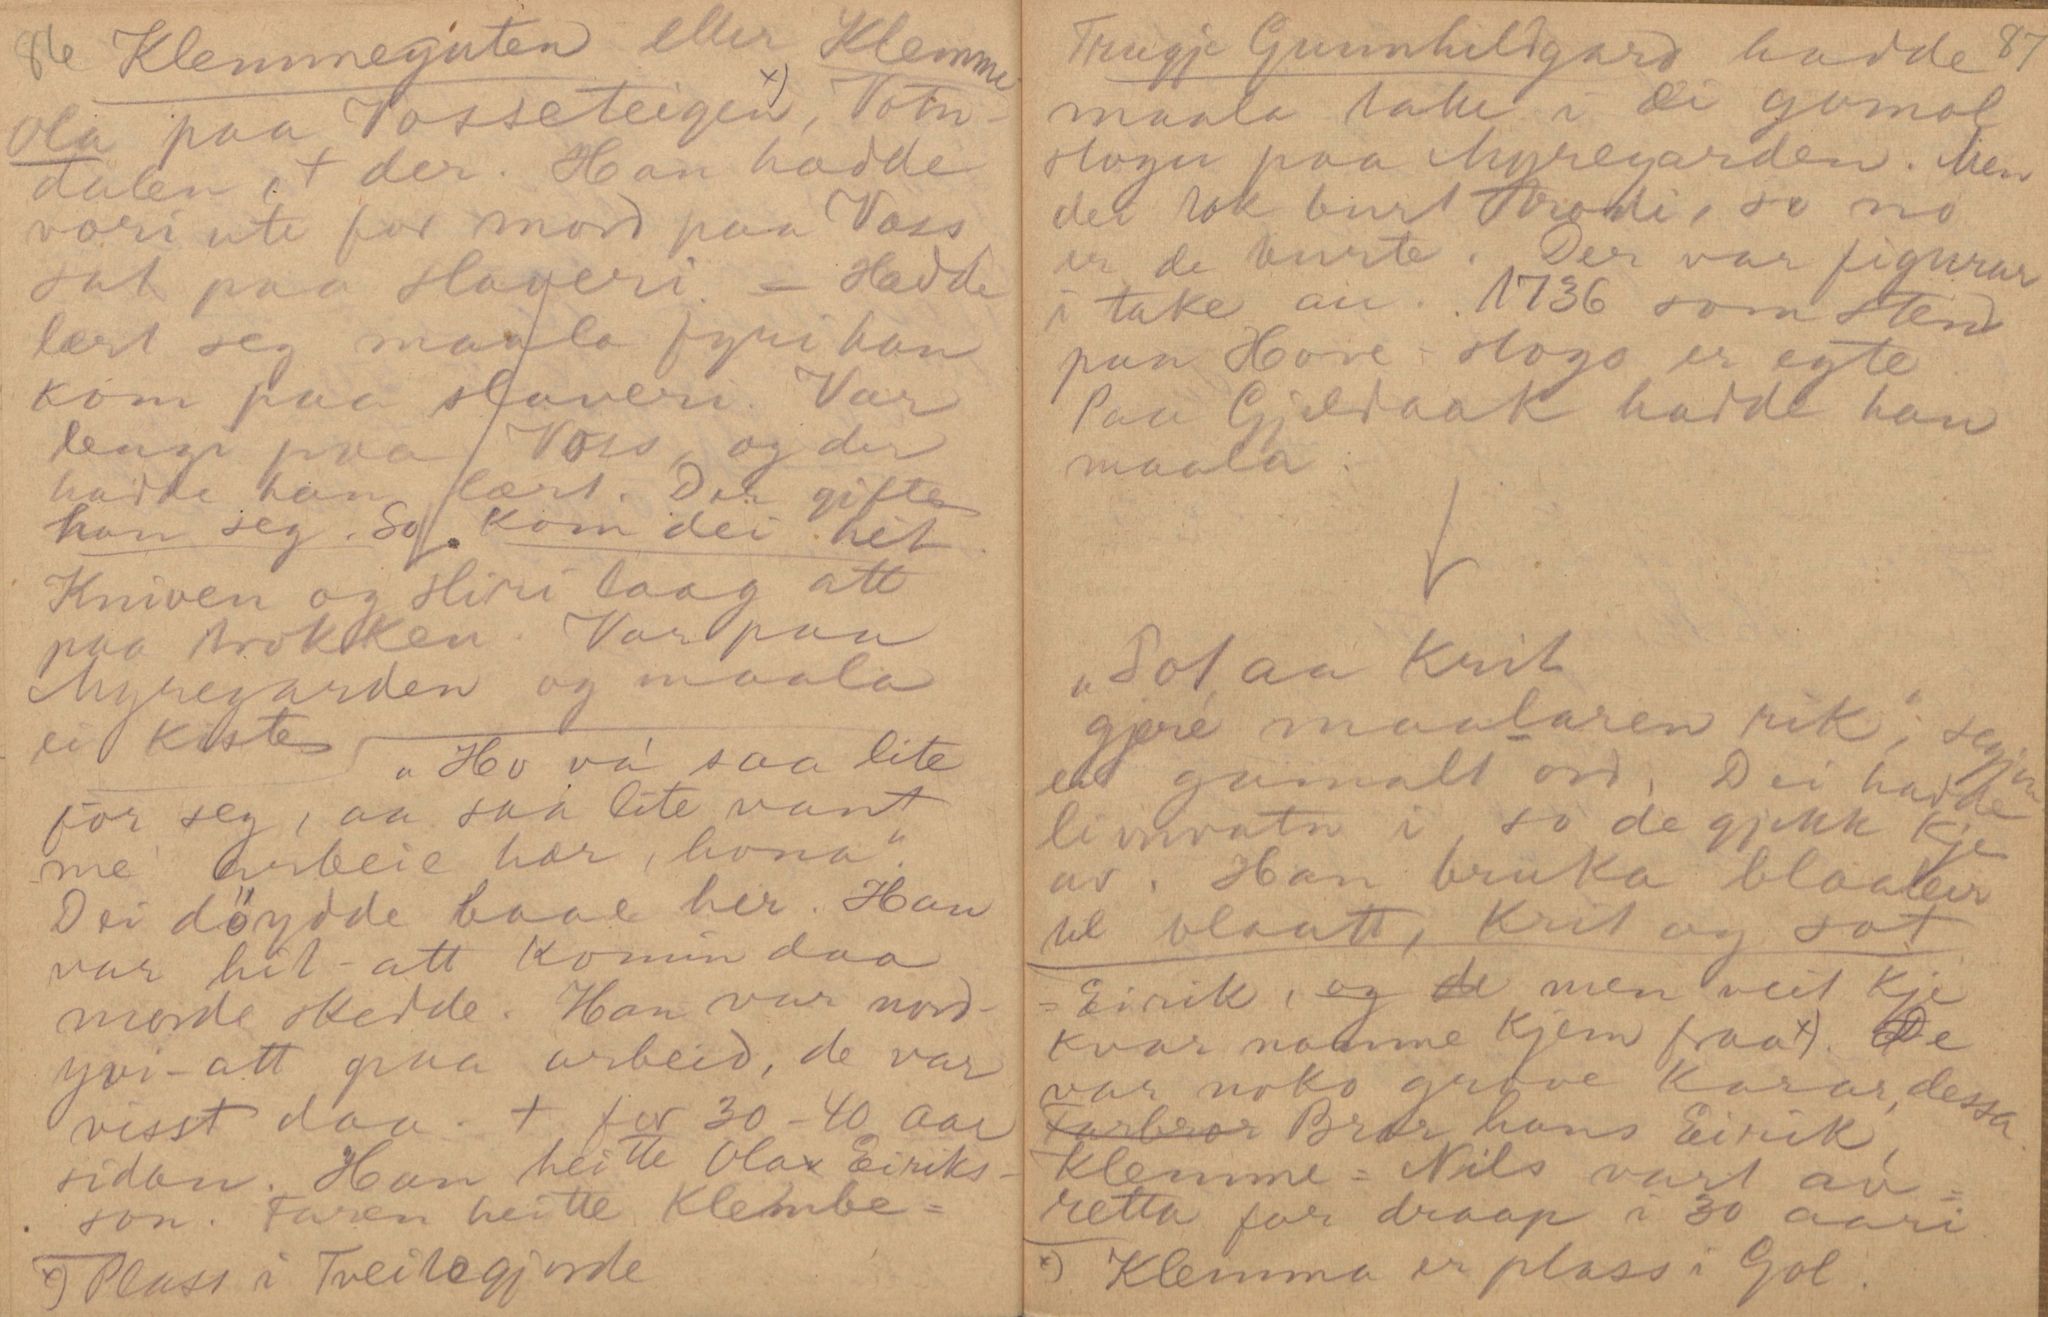 86 Klemmeguten eller Klemme
Ola paa Vosseteigen x), Votn-
dalen, + der. Han hadde
vori ute for mord paa Voss
sat paa slaveri. - Hadde
lært seg maala fyri han
kom paa slaveri. Var
lengi paa Voss, og der
hadde han lært. Der gifte
han seg. So kom dei hit.
Kniven og sliri laag att
paa brokken. Var paa
Myregarden og maala
ei kiste
"Ho va' saa lite
for seg, aa saa lite vant
me' arbeie hær, hona".
Dei döydde baae her. Han
var hit-att komin daa
morde skedde. Han var nord-
yvi-att paa arbeid, de var
visst daa. + for 30-40 aar
sidan. Han heitte Ola Eiriks-
son. Faren heitte Klembe=
x) Plass i Tveitegjorde
Trugje Gunnhildgard hadde 87
maala take i ei gomol
stogu paa Myregarden. Men
dei tok burt Brodi, so no
er de burte. Der var figurar
i take au. 1736 som stend
paa Hove-stogo er egte
Paa Gjeldaak hadde han
maala.
"Sot aa Krit
gjere maalaren rik", segjer
eit gamalt ord. Dei hadde
limvatn i, so de gjekk kje
av. Han bruka blaaleir
til blaatt, Krit og sot
=Eirik, og de men veit kje
kvar namne kjem fraa x). De
var noko grove karar, dessa.
Farbror Bror hans Eirik,
Klemme=Nils vart av=
retta for draap i 30 aari
x) Klemma er plass i Gol.